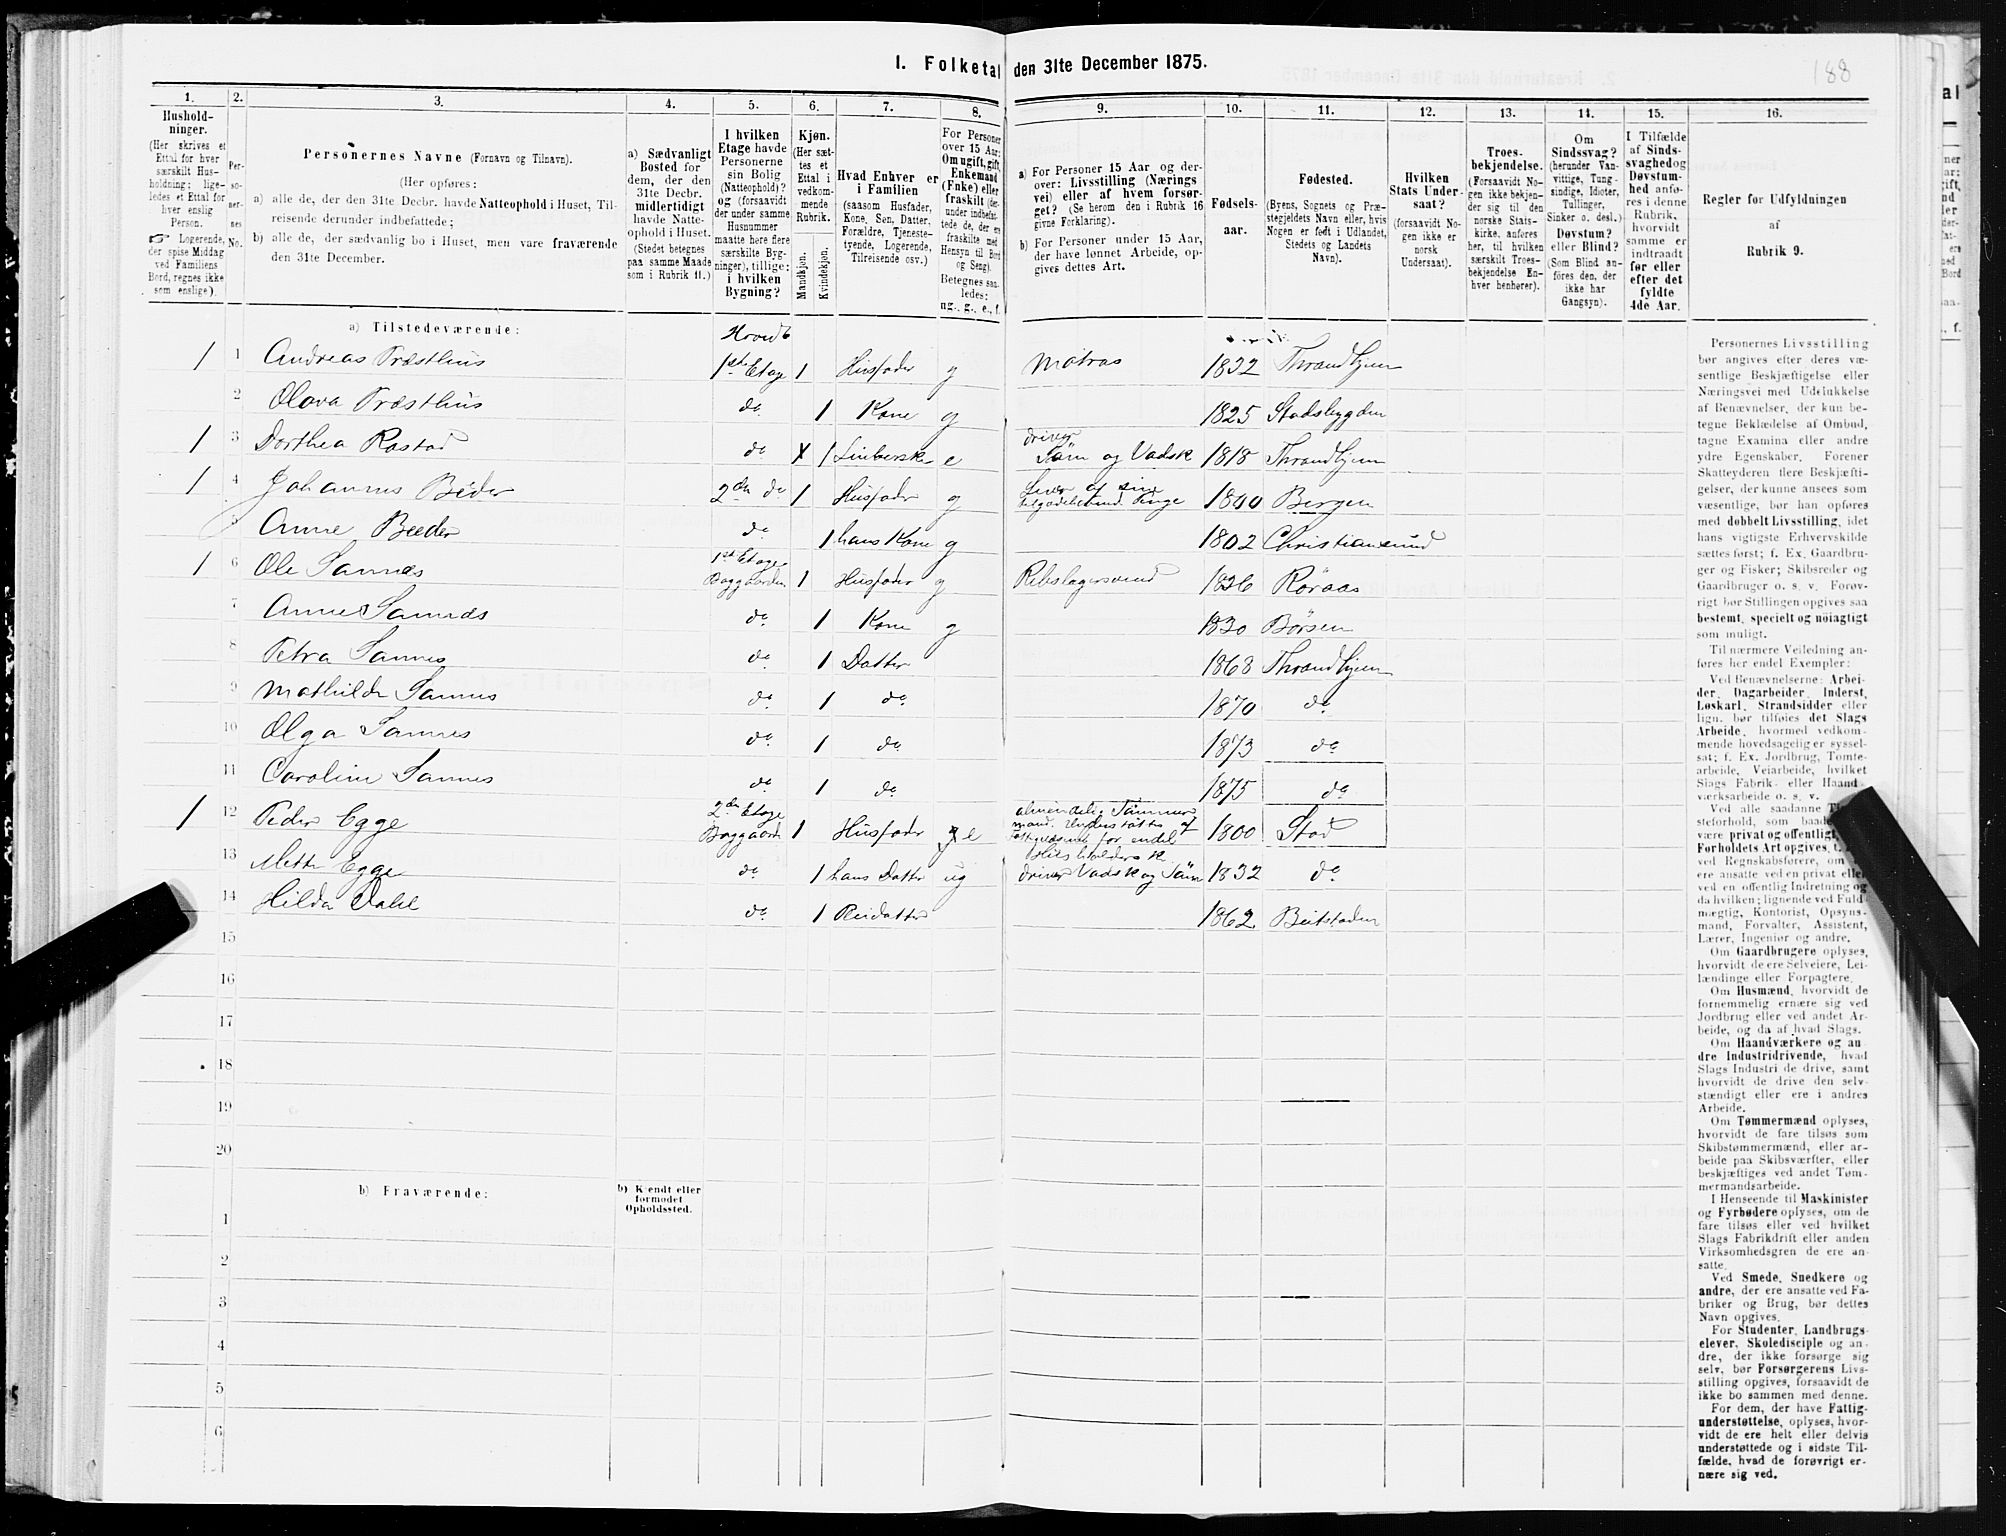 188
I. Folketal den 31te December 1875.
1. 2. 3. 4. 5. 6. 7. 8. 9. 10. 11. 12. 13. 14. 15. 16.
Hushold-
ninger.
(Her skrives et
Ettal for hver
særskilt Hus-
holdning; lige-
ledes et Ettal for
hver enslig
Person.
☞ Logerende,
der spise Middag
ved Familiens
Bord, regnes ikke
som enslige).
Per-
so-
ner-
nes
No.
Personernes Navne (Fornavn og Tilnavn).
(Her opføres:
a) alle de, der den 31te Decbr. havde Natteophold i Huset, Til-
reisende derunder indbefattede;
b) alle de, der sædvanlig bo i Huset, men vare fraværende
den 31te December.
a) Sædvanligt
Bosted for
dem, der den
31te Decbr.
midlertidigt
havde Natte-
ophold i Huset.
(Stedet betegnes
paa samme Maade
som i Rubrik 11.)
I hvilken
Etage havde
Personerne
sin Bolig
(Natteophold)?
og (forsaavidt
der under samme
Husnummer
maatte høre flere
særskilte Byg-
ninger), tillige:
i hvilken
Bygning?
Kjøn.
(Her sæt-
tes et
Ettal i
vedkom-
mende
Rubrik.
Mandkjøn.
Kvindekjøn.
Hvad Enhver er
i Familien
(saasom Husfader,
Kone, Søn, Datter,
Forældre, Tjeneste-
tyende, Logerende,
Tilreisende osv.)
For Personer
over 15 Aar:
Om ugift, gift,
Enkemand
(Enke) eller
fraskilt
Betegnes saa-
ledes:
ug., g., e., f.
a) For Personer 15 Aar og der-
over: Livsstilling (Nærings
vei) eller af hvem forsør-
get? (Se herom den i Rubrik 16
givne Forklaring).
b) For Personer under 15 Aar,
der have lønnet Arbeide, op-
gives dettes Art.
Fødsels-
aar.
Fødested.
(Byens, Sognets og Præ-
stegjeldets Navn eller, hvis
Nogen er født i Udlandet,
Stedets og Landets
Navn).
Hvilken
Stats Under-
saat?
(forsaavidt No-
gen ikke er
norsk
Undersaat).
Troes-
bekjendelse.
(Forsaavidt No-
gen ikke bekjen-
der sig til den
norske Stats-
kirke, anføres
her, til hvilken
særskilt Troes-
bekjendelse En-
hver henhører).
Om
Sindssvag?
(herunder Van-
vittige, Tung-
sindige, Idioter,
Tullinger,
Sinker o. desl.)
Døvstum?
eller Blind?
(Som Blind an-
føres den, der
ikke har
Gangsyn).
I Tilfælde
af Sinds-
svaghed og
Døvstum-
hed anfø-
res i denne
Rubrik,
hvorvidt
samme er
indtraadt
før eller
efter det
fyldte
4de Aar.
Regler for Udfyldningen
af
Rubrik 9.
a) Tilstedeværende:
1 1 Andreas Præsthus 1ste Etage 1 Husfader g Matros 1832 Thrandhjem
2 Olava Præsthus do 1 Kone g 1825 Stadsbygden
1 3 Dorthea Rostad do 1 e driver Søm og Vadsk 1818 Thrandhjem
1 4 Johannes Beder 2den do 1 Husfader g Lever af sine Penge 1800 Bergen
5 Anne Beeder do 1 hans Kone g 1802 Christiansund
1 6 Ole Sannes 1ste Etage Baggaarden 1 Husfader g Rebslagersvend 1826 Røraas
7 Anne Sannes do 1 Kone g 1830 Børsen
8 Petra Sannes do 1 Datter 1868 Thrandhjem
9 Mathilde Sannes do 1 do 1870 do
10 Olga Sannes do 1 do 1873 do
11 Caroline Sannes do 1 do 1875 do
1 12 Peder Egge 2den Etage Baggaarden 1 Husfader e almindelig Tømmer mand. Understøttes af for endel 1800 Stod
13 Mette Egge do 1 hans Datter ug driver Vadsk og Søm 1832 do
14 Hilda Dahl do 1 Pleiedatter 1862 Beitstaden
15
16
17
18
19
20
b) Fraværende:
b) Kjendt eller
formodet
Opholdssted.
1
2
3
4
5
6
Personernes Livsstilling
bør angives efter deres væ-
sentlige Beskjæftigelse eller
Næringsvei med Udelukkelse
af Benævnelser, der kun be-
tegne Beklædelse af Ombud,
tagne Examina eller andre
ydre Egenskaber. Forener
Skatteyderen flere Beskjæfti-
gelser, der kunne ansees som
væsentlige, bør han opføres
med dobbelt Livsstilling, idet
hans vigtigste Erhvervskilde
sættes først; f. Ex. Gaardbru-
ger og Fisker; Skibsreder og
Gaardbruger o. s. v. Forøv-
rigt bør Stillingen opgives saa
bestemt, specielt og nöiagtigt
som muligt.
Til nærmere Veiledning an-
føres her endel Exempler:
Ved Benævnelserne: Arbei-
der, Dagarbeider, Inderst,
Løskarl, Strandsidder eller
lign. bør tilføies det Slags
Arbeide, hvormed vedkom-
mende hovedsagelig er syssel-
sat; f. Ex. Jordbrug, Tomte-
arbeide, Veiarbeide, hvilket
Slags Fabrik- eller Haand-
værksarbeide o. s. v.
Ved alle saadanne
steforhold, som baade
være privat og offentligt,
Forholdets Art opgives,
ved Regnskabsførere, om
ere ansatte ved en privat eller
ved en offentlig Indretning og
da hvilken; lignende ved Fuld-
mægtig, Kontorist, Opsyns-
mand, Forvalter, Assistent,
Lærer, Ingeniør og andre.
Om Gaardbrugere oplyses,
hvorvidt de ere Selveiere, Lei-
lændinge eller Forpagtere.
Om Husmænd, hvorvidt de
fornemmelig ernære sig ved
Jordbrug eller ved andet Ar-
beide, og da af hvad Slags.
Om Haandværkere og an-
dre Industridrivende, hvad
Slags Industri de drive, samt
hvorvidt de drive den selv-
stændigt eller ere i andres
Arbeide.
Om Tømmermænd oplyses,
hvorvidt de fare tilsøs som
Skibstømmermænd, eller ar-
beide paa Skibsværfter, eller
beskjæftiges ved andet Tøm-
mermandsarbeide.
I Henseende til Maskinister
og Fyrbødere oplyses, om de
fare tilsøs eller ved hvilket
Slags Fabrikdrift eller anden
Virksomhedsgren de ere an-
satte.
Ved Smede, Snedkere og
andre, der ere ansatte ved Fa-
briker og Brug, bør dettes
Navn opgives.
For Studenter, Landbrugs-
elever, Skoledisciple og an-
dre, der ikke forsørge sig
selv, bør Forsørgerens Livs-
stilling opgives, forsaavidt de
ikke bo sammen med denne.
For dem, der have Fattig-
understøttelse, oplyses, hvor-
vidt de ere helt eller delvis
understøttede og i sidste Til-
fælde, hvad de forøvrigt er-
nære sig ved.